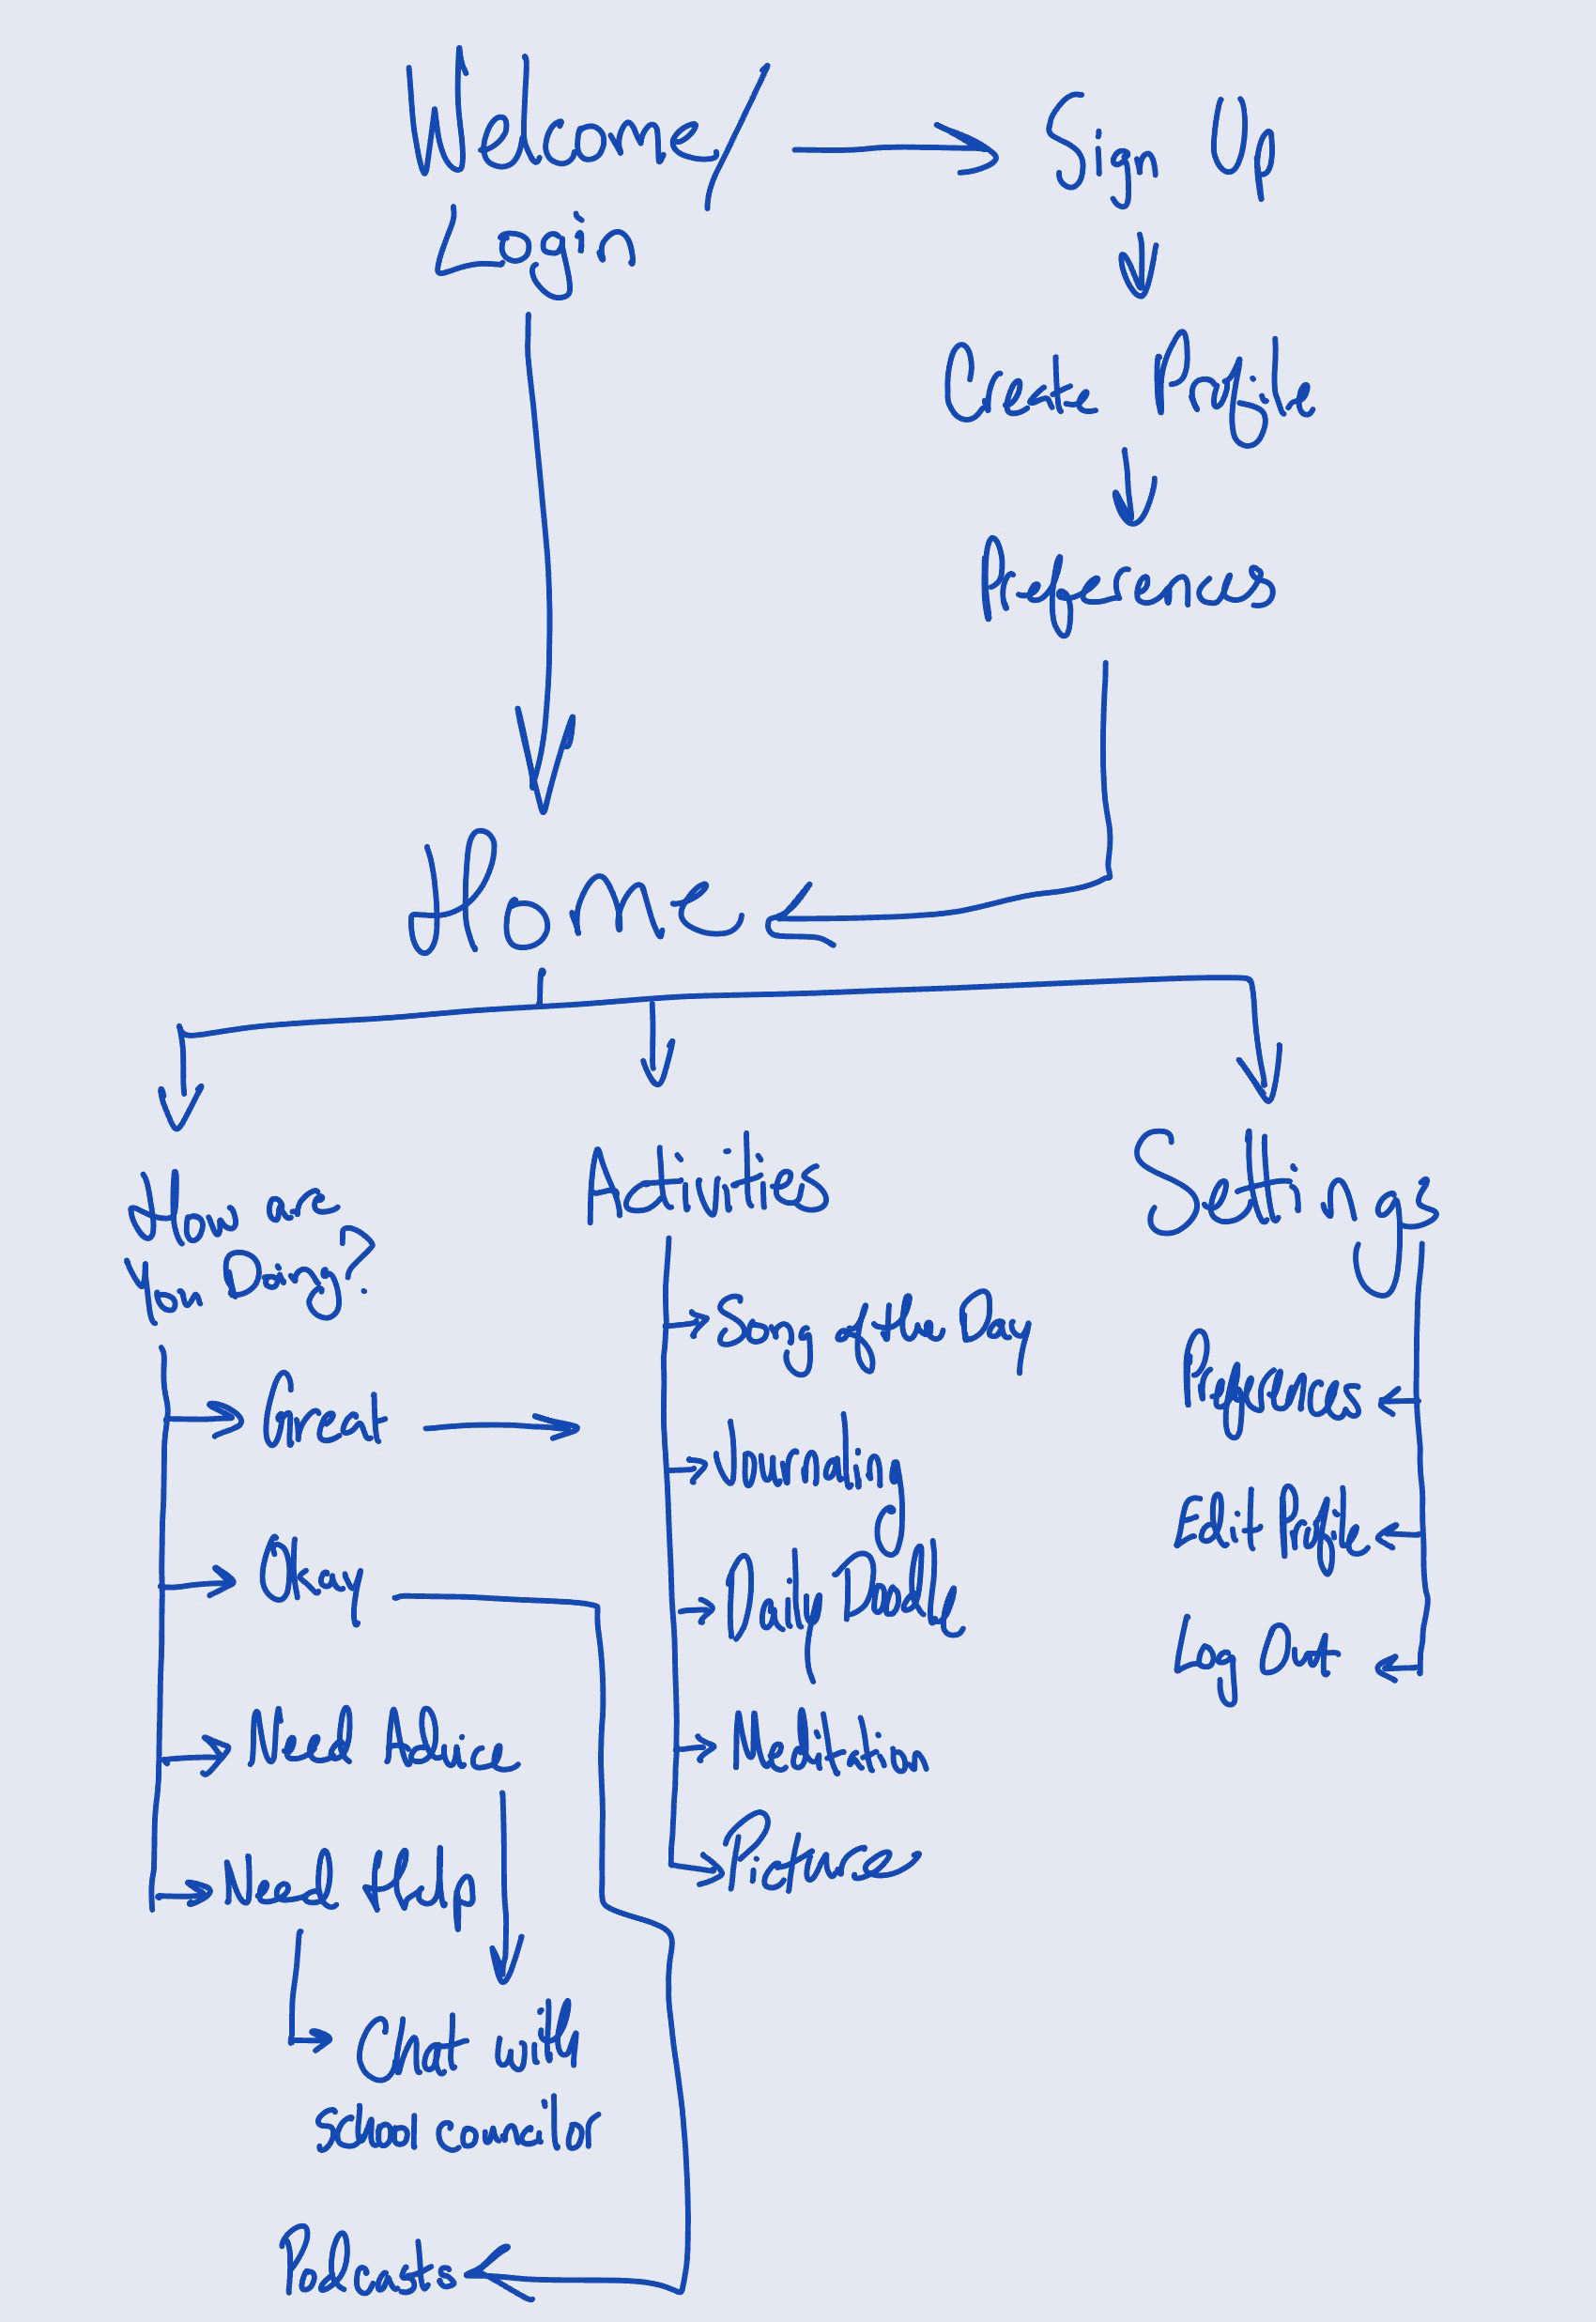 Welcome/
Login
Sign Up
Create Profile
Preferences
Home
How are
You Doing?
Great
Okay
Need Advice
Need Help
Chat with
School councilor
Podcasts
Activities
Song of the Day
Journaling
Daily Doodle
Meditation
Pictures
Settings
Preferences
Edit Profile
Log Out